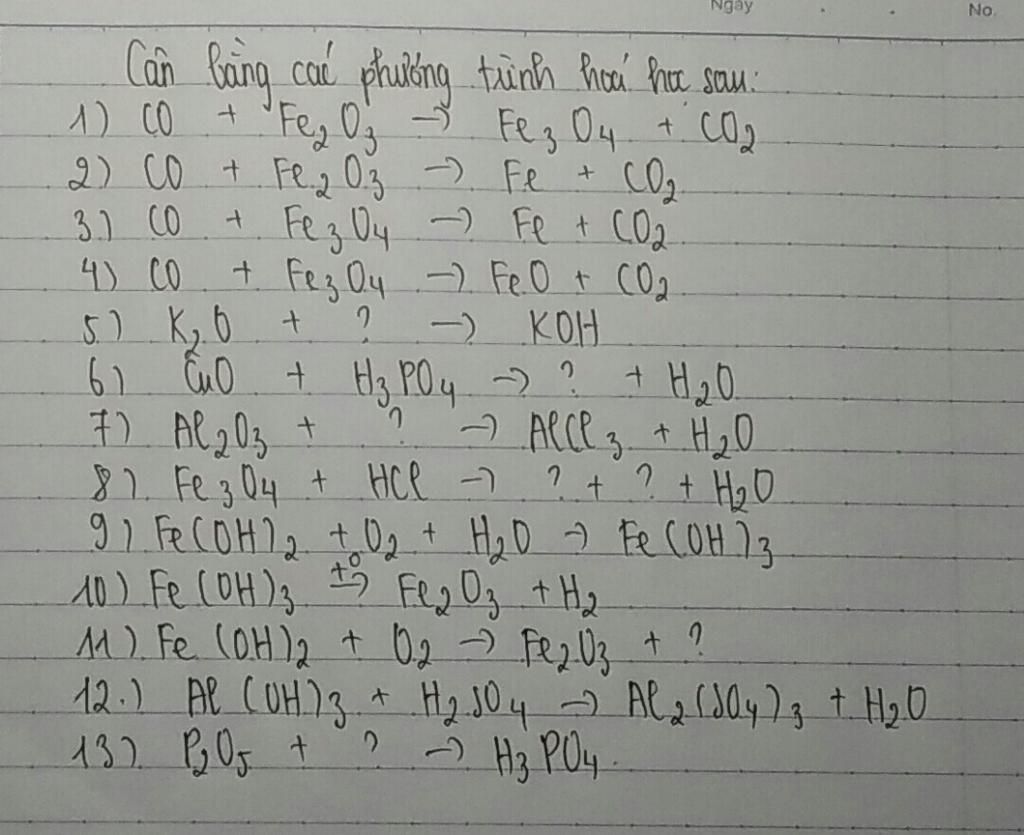 Ngày . . No.
Cân bằng các phương trình hoá học sau:
1) CO + Fe2O3 → Fe3O4 + CO2
2) CO + Fe2O3 → Fe + CO2
3) CO + Fe3O4 → Fe + CO2
4) CO + Fe3O4 → FeO + CO2
5) K2O + ? → KOH
6) CuO + H3PO4 → ? + H2O
7) Al2O3 + ? → AlCl3 + H2O
8) Fe3O4 + HCl → ? + ? + H2O
9) Fe(OH)2 + O2 + H2O → Fe(OH)3
10) Fe(OH)3 t°→ Fe2O3 + H2
11) Fe(OH)2 + O2 → Fe2O3 + ?
12.) Al(OH)3 + H2SO4 → Al2(SO4)3 + H2O
13) P2O5 + ? → H3PO4.